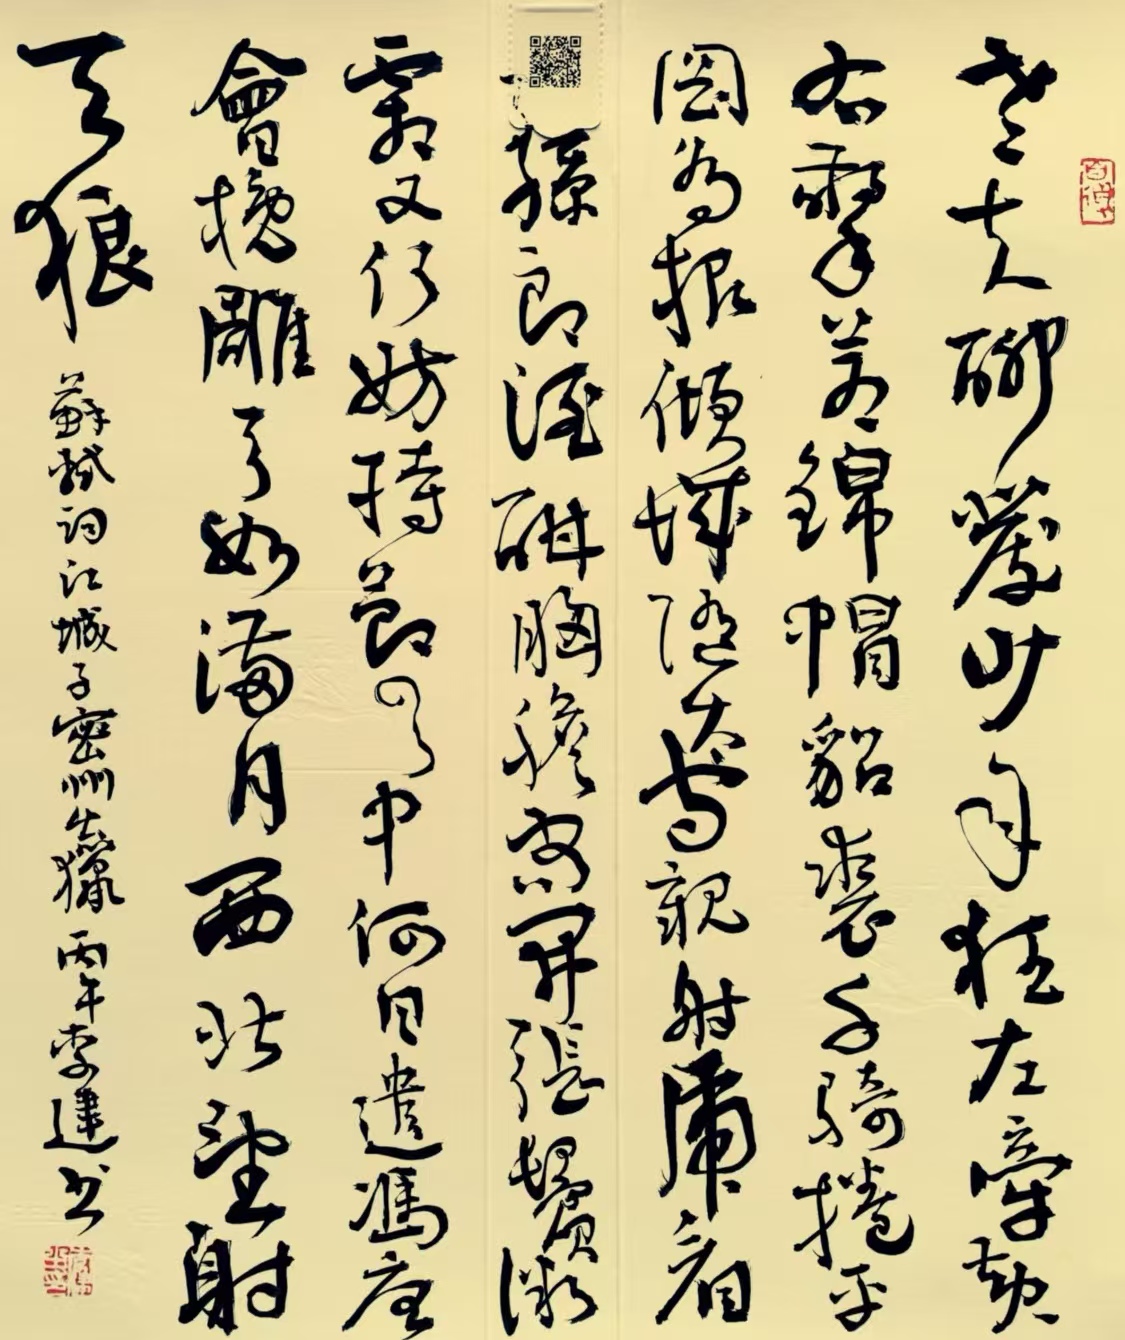 老夫聊發少年狂左牽黃
右擎蒼錦帽貂裘千騎捲平
岡為報傾城隨太守親射虎看
孫郎酒酣胸膽尚開張鬢微
霜又何妨持節雲中何日遣馮唐
會挽雕弓如滿月西北望射
天狼
蘇軾詞江城子密州出獵 丙午李建書